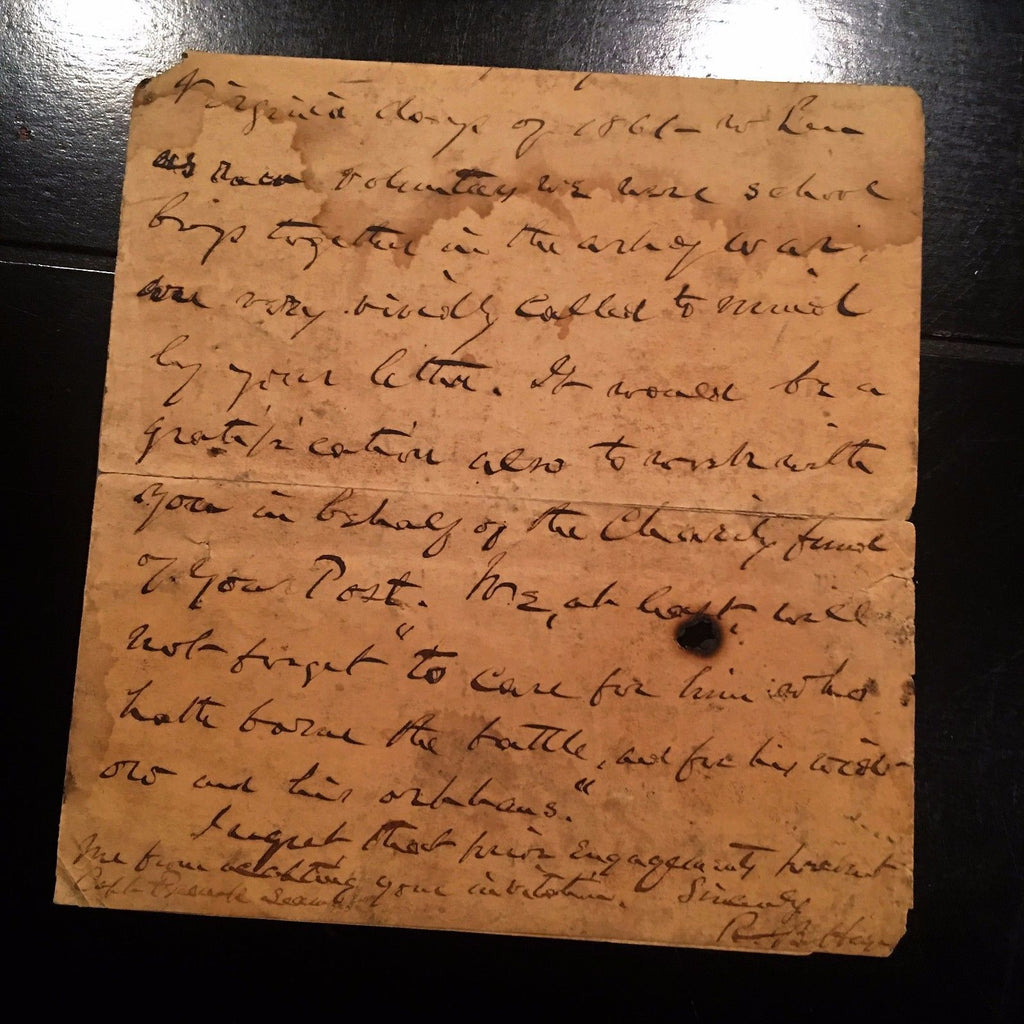 Virginia days of 1861 - when
as raw volunteers we were school
boys together in the art of war,
are very vividly called to mind
by your letter. It would be a
gratification also to work with
you in behalf of the Charity fund
of your Post. We, at least, will
not forget "to care for him who
hath borne the battle, and for his wid-
ow and his orphans."
I regret that prior engagements prevent
me from accepting your invitation. Sincerely
R B Hayes
Capt